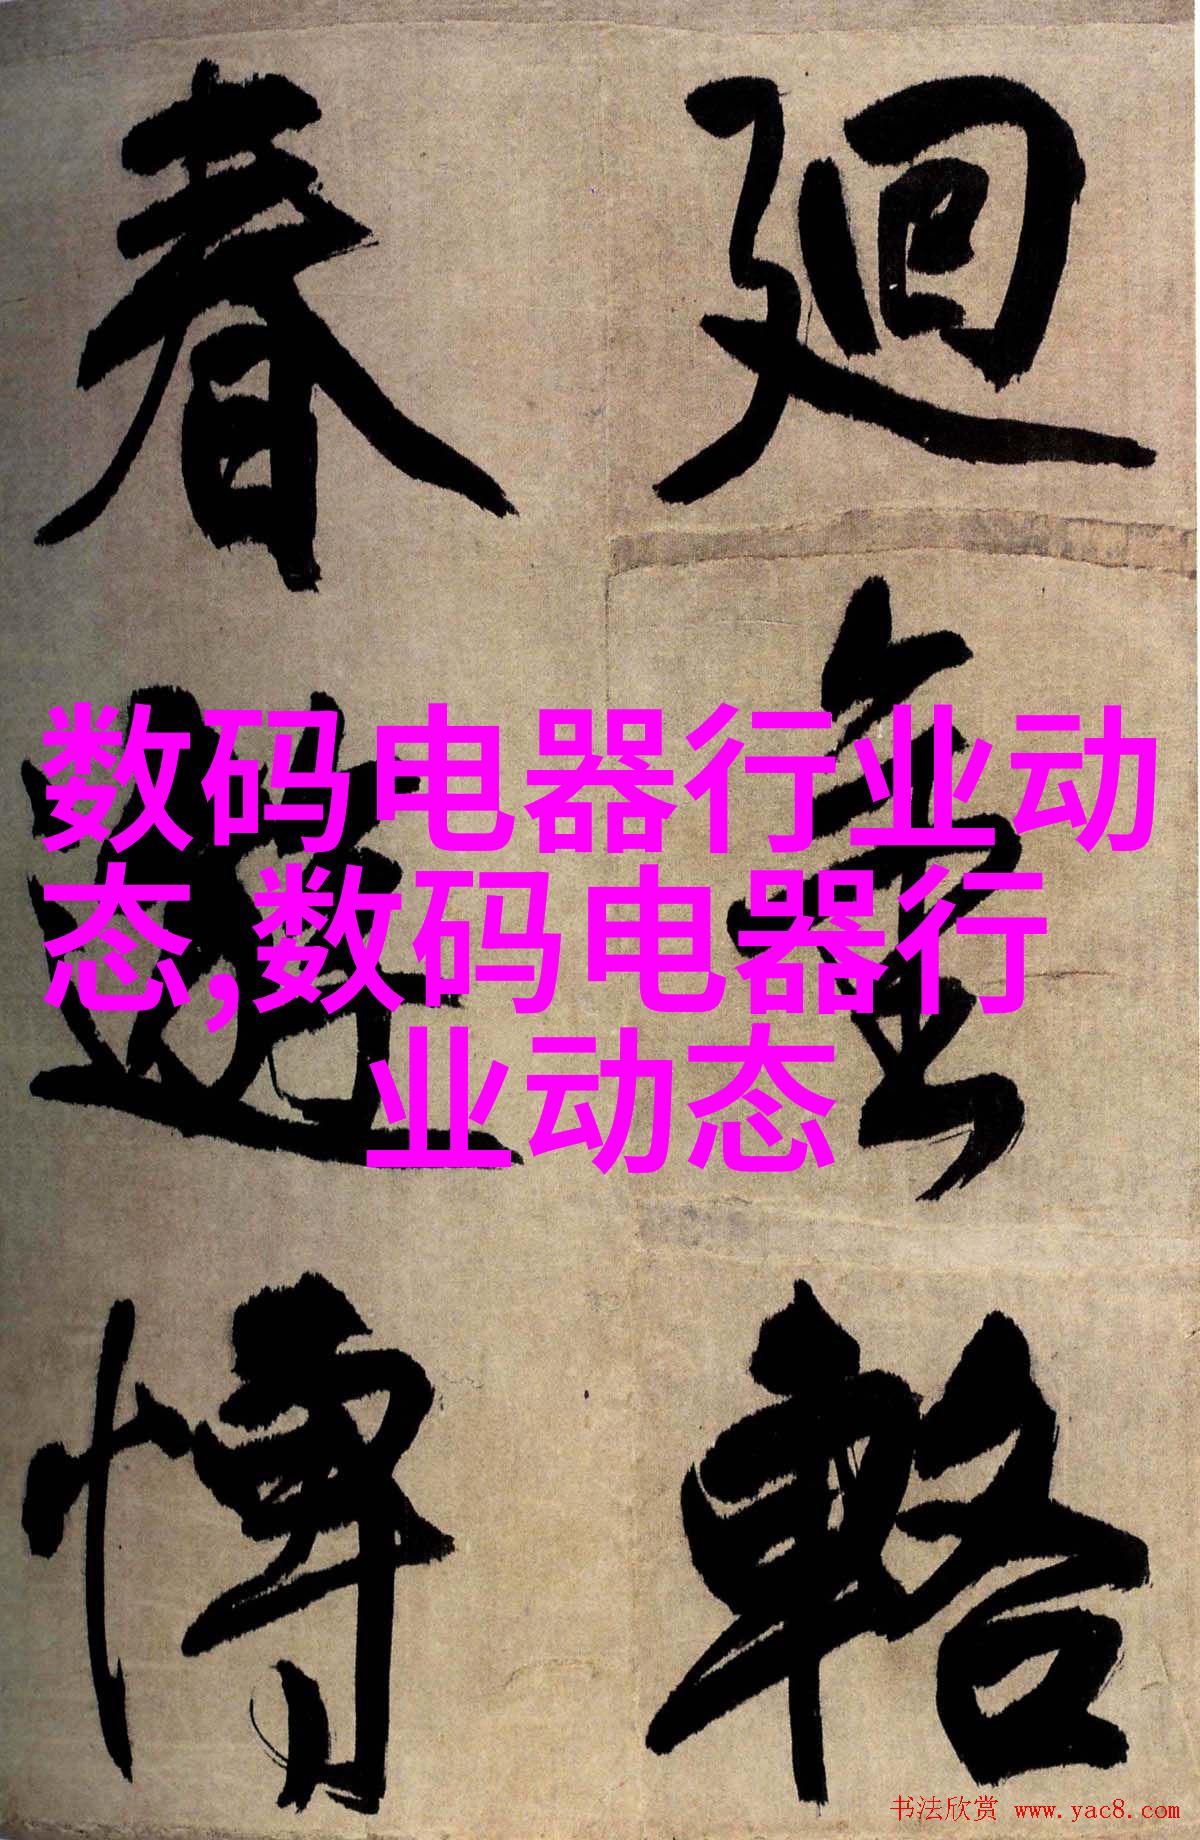 廻
輅
春遊愽
数码电器行业动
态,数码电器行
业动态
书法欣赏 www.yac8.com